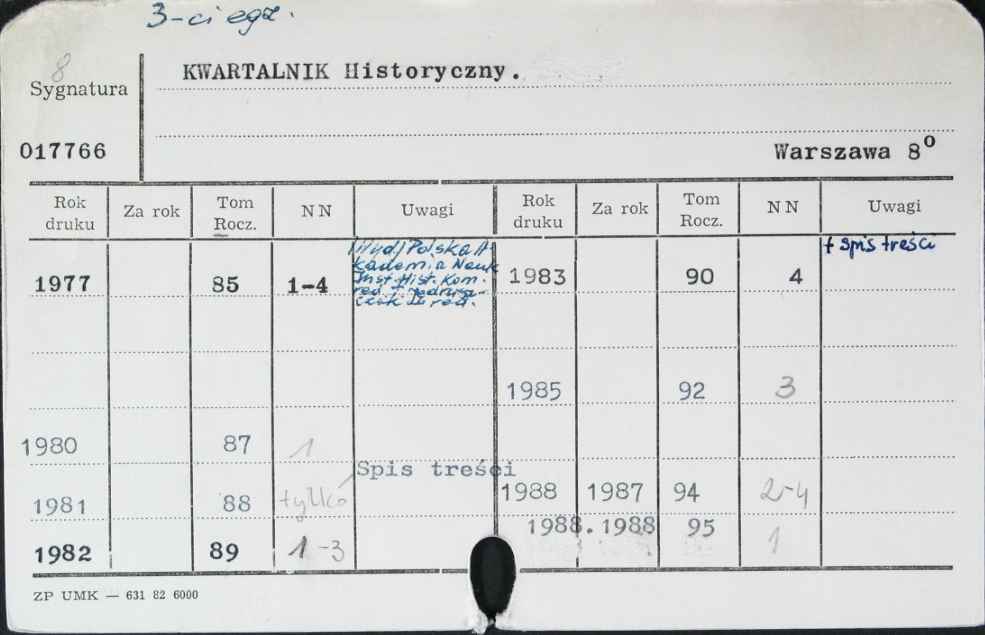 3-ci egz.
8
Sygnatura
KWARTALNIK Historyczny.
017766
Warszawa 8°
Rok druku Za rok Tom Rocz. NN Uwagi Rok druku Za rok Tom Rocz. NN Uwagi
+ spis treści
Polska A-
kademia Nauk
1977 85 1-4 Inst. Hist. Kom. 1983 90 4
red.
red.
1985 92 3
1980 87 1
Spis treści
1981 88 tylko 1988 1987 94 2-4
1988. 1988 95 1
1982 89 1-3
ZP UMK — 631 82 6000